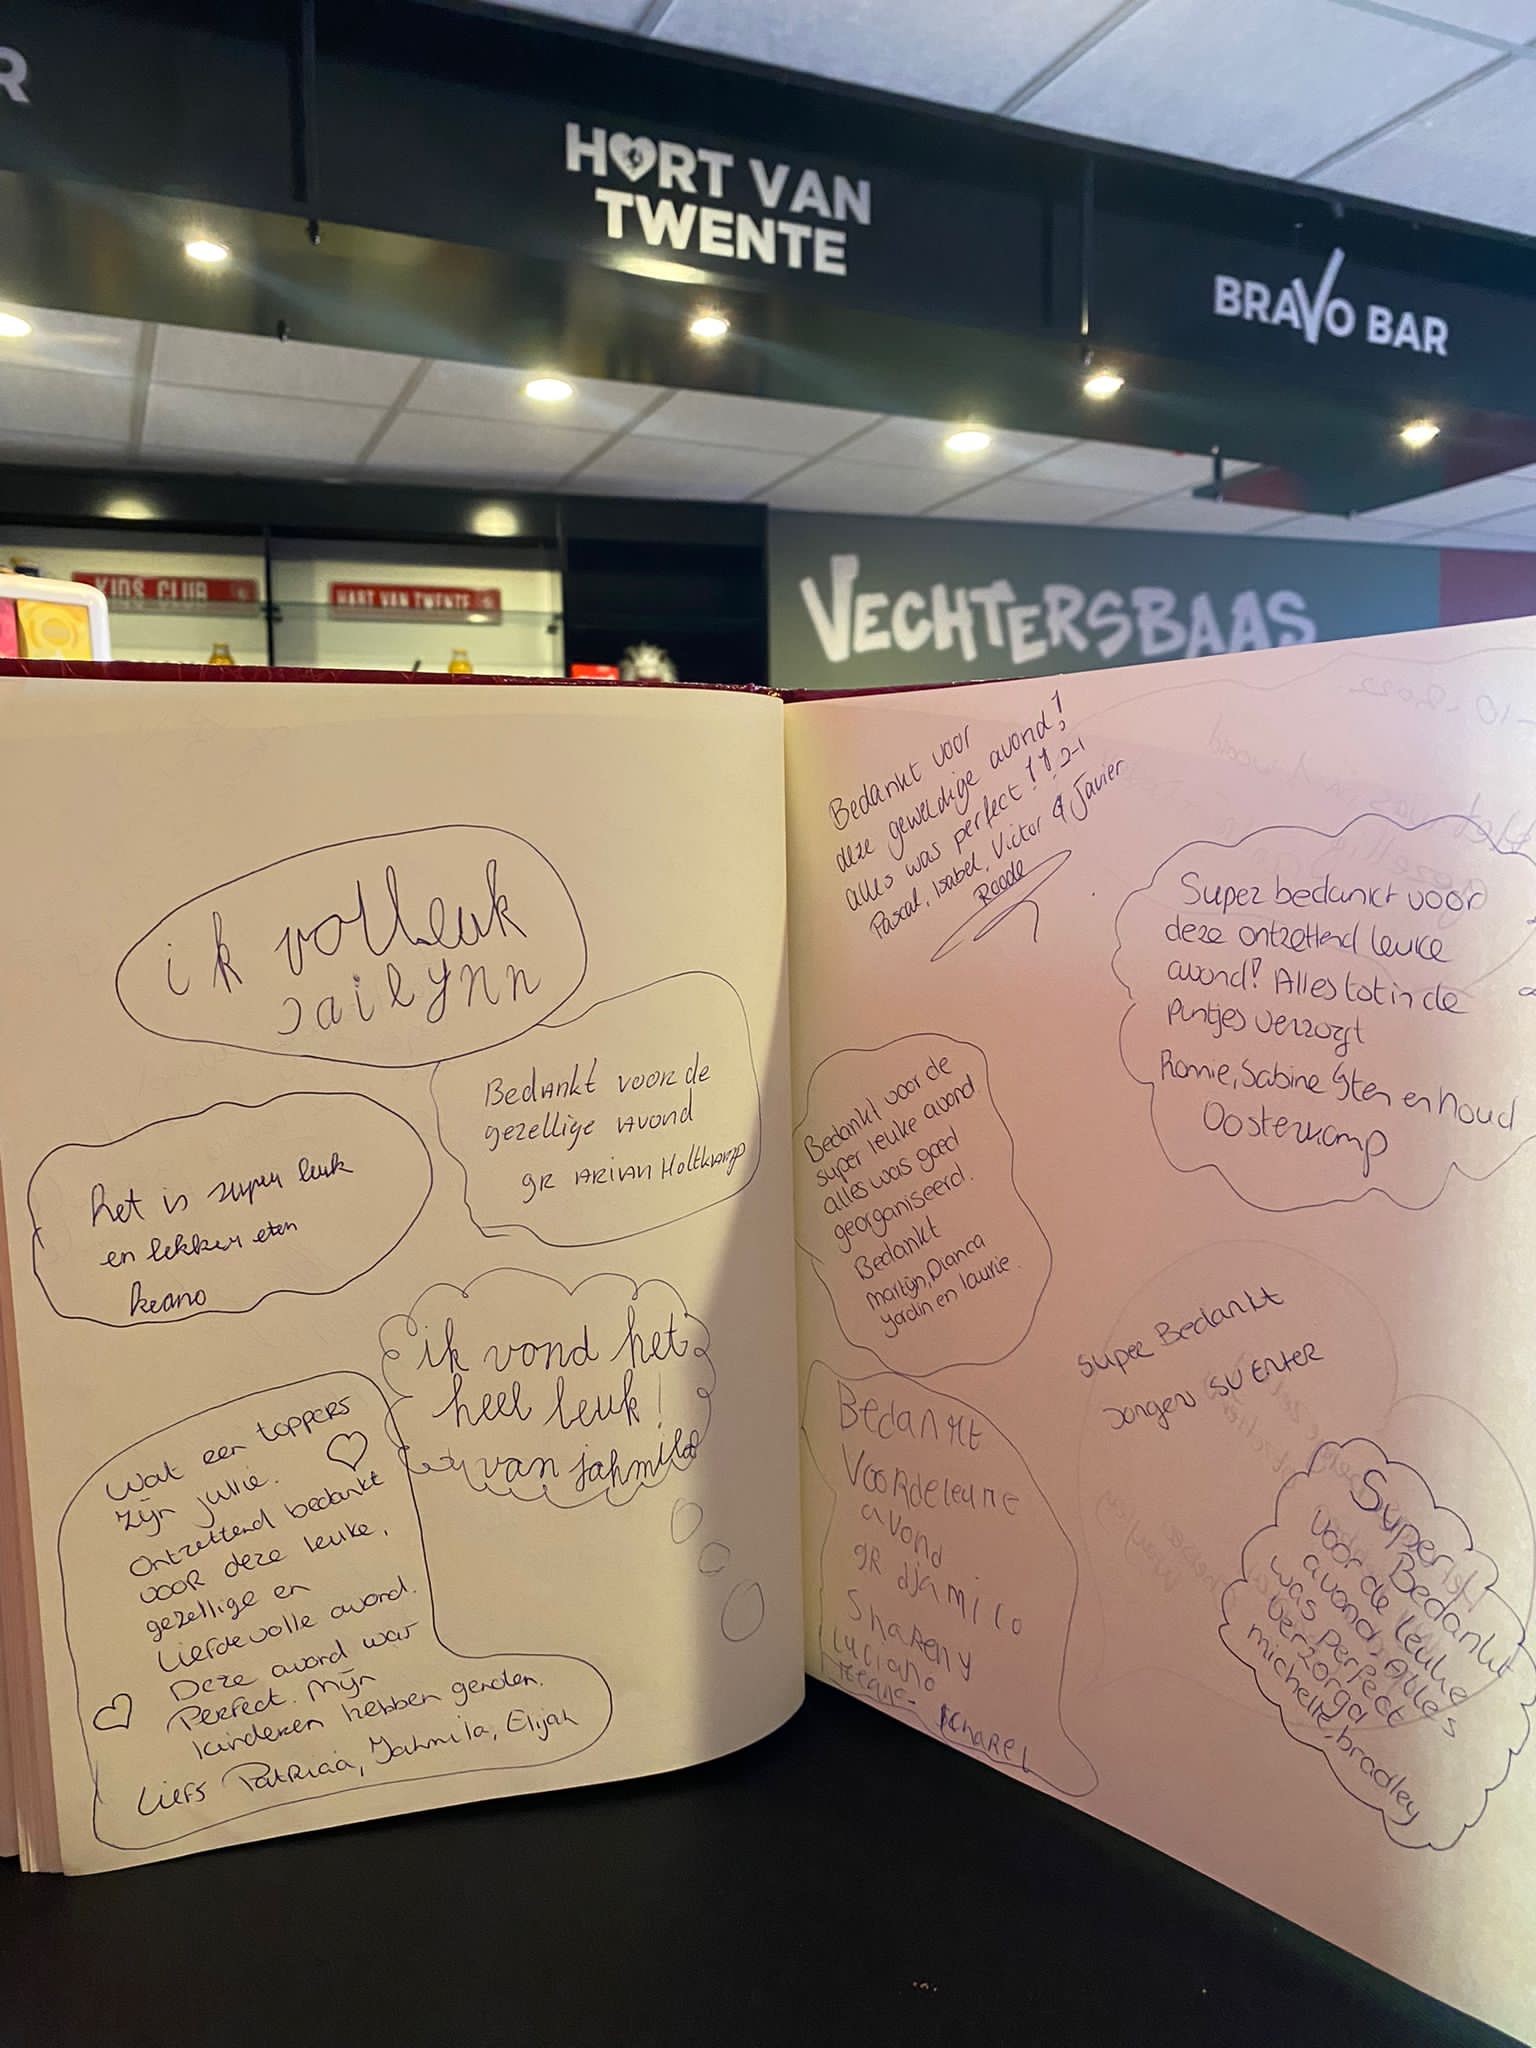 R
HART VAN
TWENTE
BRAVO BAR
KIDS CLUB
HART VAN TWENTE
VECHTERSBAAS
ik vol leuk
Jailynn
Bedankt voor de
gezellige avond
gr Arian Holtkamp
het is super leuk
en lekker eten
keano
ik vond het
heel leuk!
van Jahmila
Wat een toppers
zijn jullie.
Ontzettend bedankt
voor deze leuke,
gezellige en
liefdevolle avond.
Deze avond was
Perfect. Mijn
kinderen hebben genoten.
Liefs Patricia, Jahmila, Elijah
Bedankt voor
deze geweldige avond!
alles was perfect!!! 2-1
Pascal, Isabel, Victor & Javier
Roode
Super bedankt voor
deze ontzettend leuke
avond! Alles tot in de
puntjes verzorgt
Ronnie, Sabine Sten en Noud
Oosterkamp
Bedankt voor de
super leuke avond
alles was goed
georganiseerd.
Bedankt
Martijn, Dianca
Jordin en laurie.
Super Bedankt
Jongens SV ENTER
Bedankt
Voor de leuke
avond
gr djamilo
Shareny
Luciano
Scharel
Super
Bedankt
voor de leuke
avond. Alles
was perfect
verzorgd
michelle, bradley